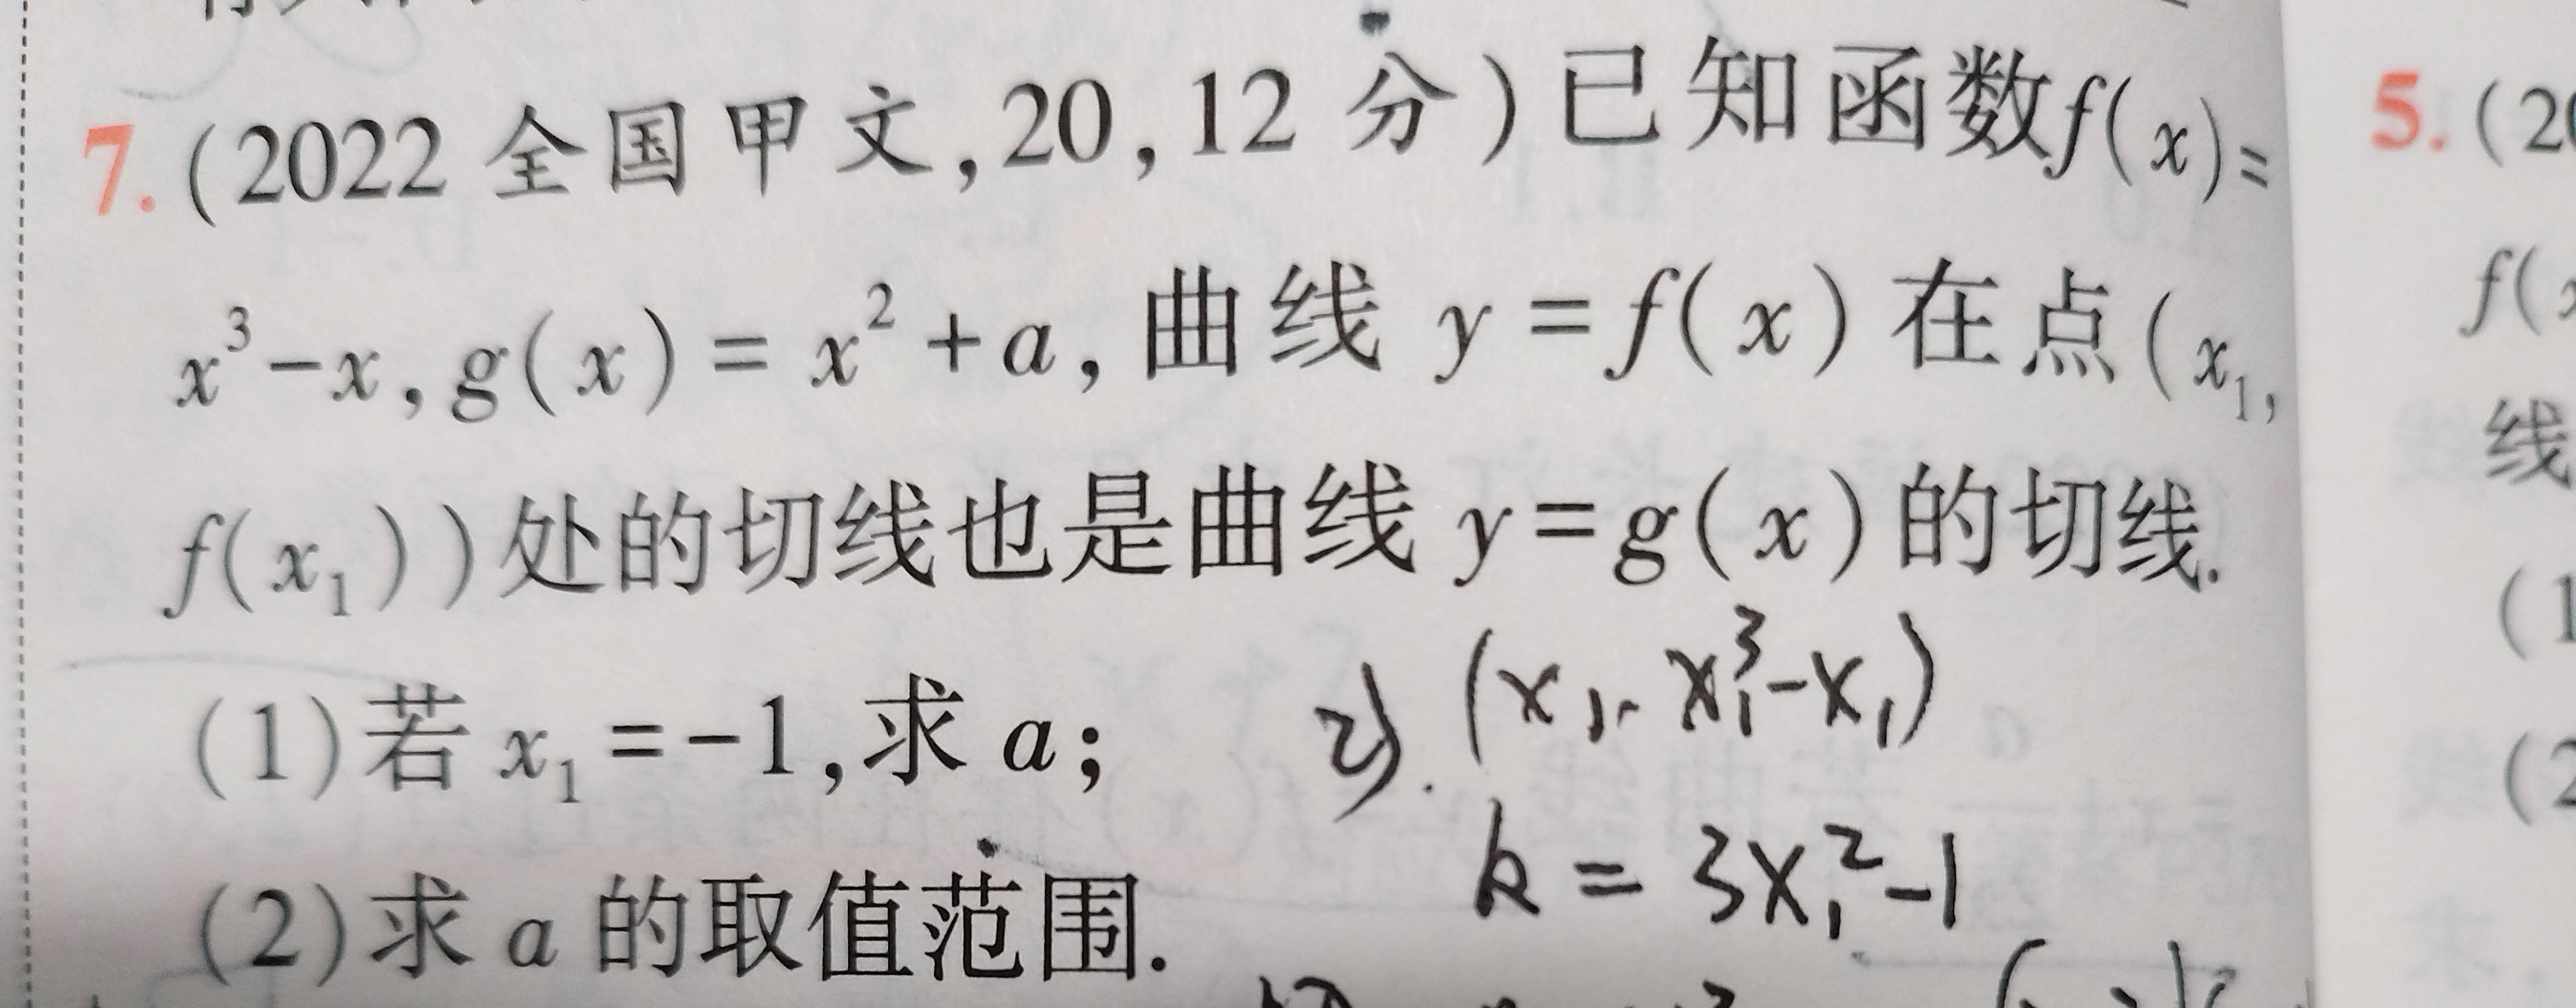 7. (2022 全国甲文,20,12 分)已知函数f(x)=
x³-x,g(x)=x²+a,曲线 y=f(x)在点(x₁,
f(x₁))处的切线也是曲线 y=g(x)的切线.
(1)若 x₁=-1,求 a;
(2)求 a 的取值范围.
2). (x₁, x₁³-x₁)
k = 3x₁²-1
5. (20
f(x
线
(1
(2